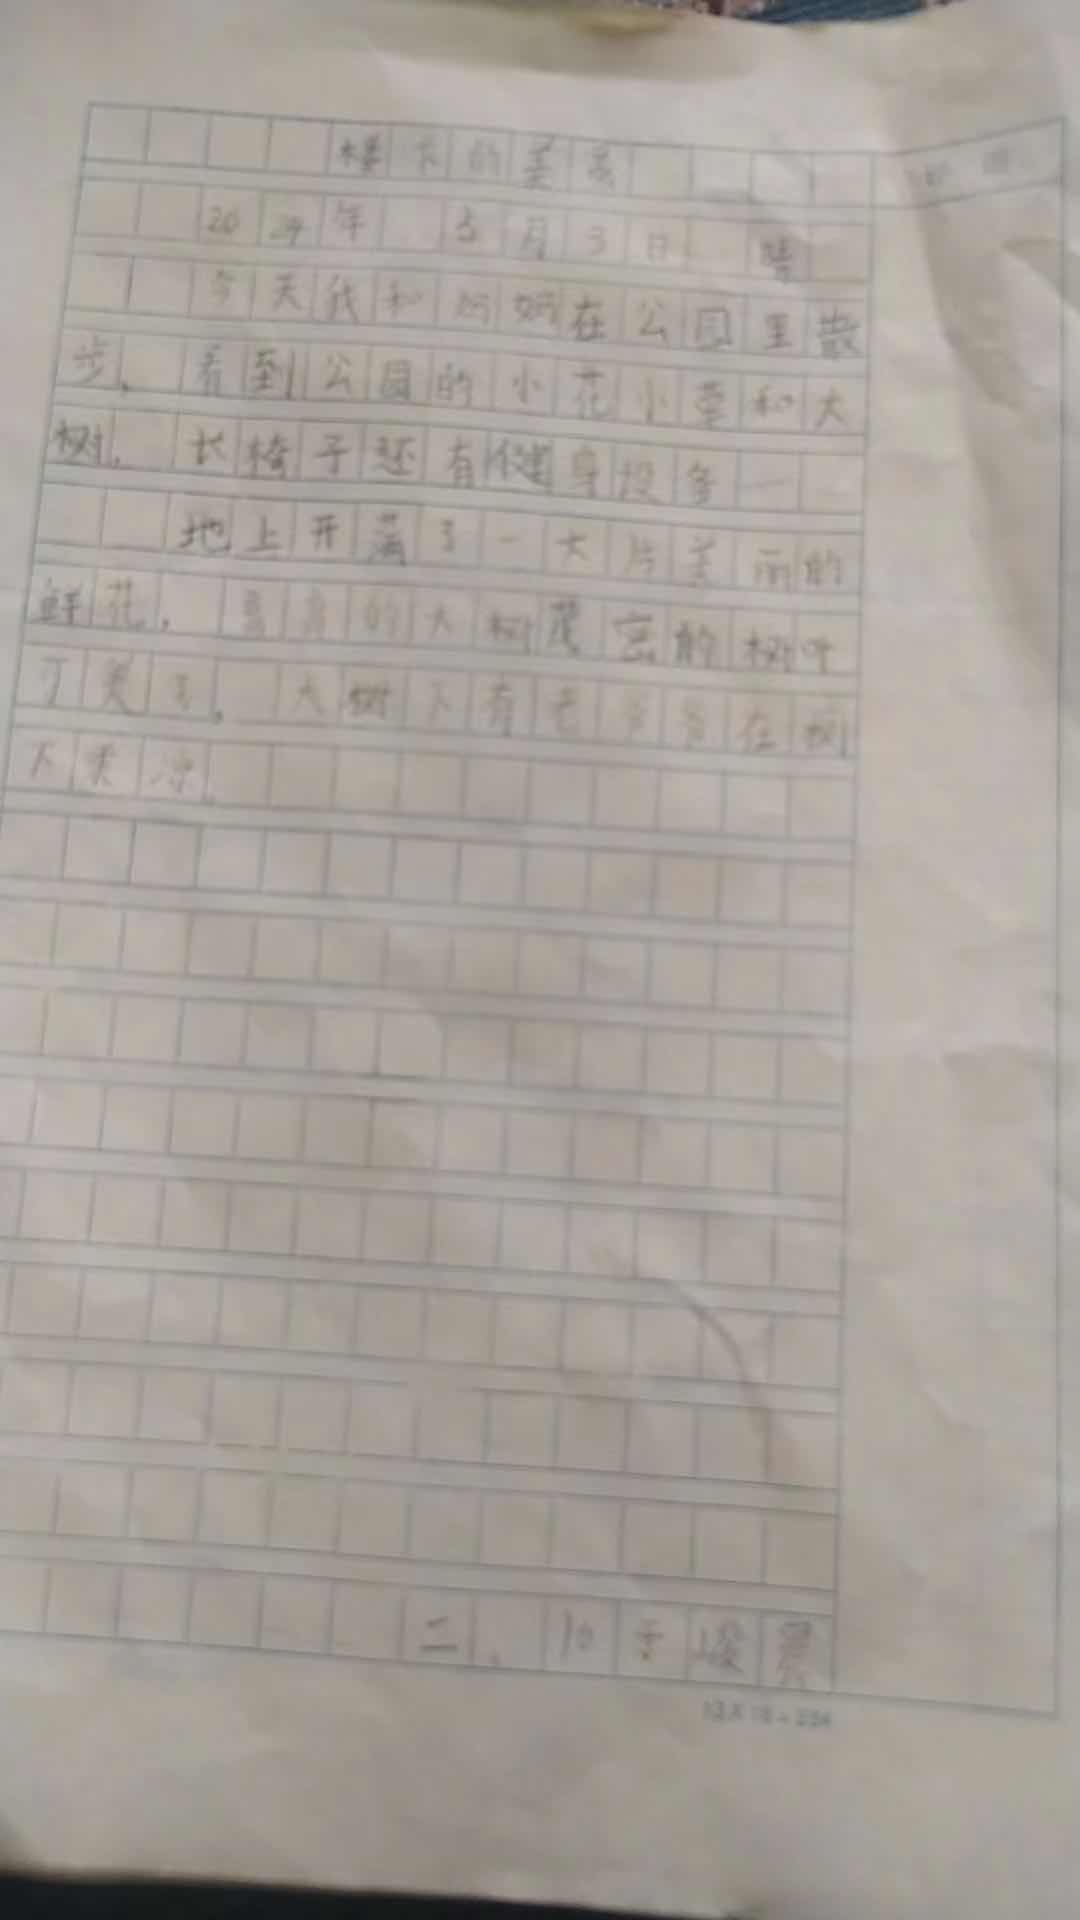 楼下的美景
2024年 5月3日 晴
今天我和妈妈在公园里散
步、看到公园的小花小草和大
树、长椅子还有健身设备一
地上开满了一大片美丽的
鲜花，高高的大树茂密的树叶
了美了，大树下有老爷爷在树
下乘凉.
二、10 于峻